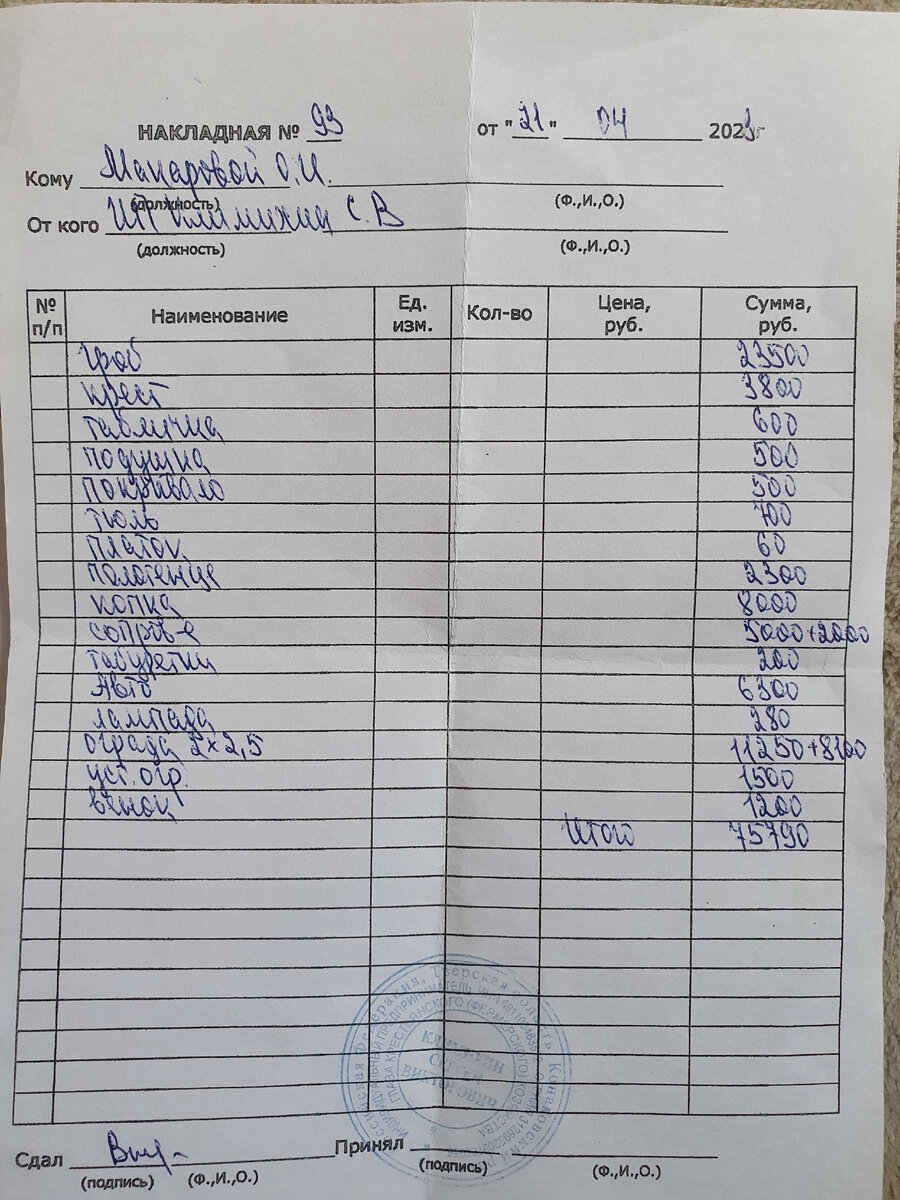 НАКЛАДНАЯ № 93 от "21" 04 2023г
Кому Макаровой О.И.
(должность) (Ф.,И.,О.)
От кого ИП Климихин С.В
(должность) (Ф.,И.,О.)
№ п/п Наименование Ед. изм. Кол-во Цена, руб. Сумма, руб.
гроб 23500
крест 3800
табличка 600
подушка 500
покрывало 500
тюль 700
платок 60
полотенце 2300
копка 8000
сопров-е 5000+2000
табуретки 200
Авто 6300
лампада 280
ограда 2×2,5 11250+8100
уст. огр. 1500
венок 1200
Итого 75790
Сдал Принял
(подпись) (Ф.,И.,О.) (подпись) (Ф.,И.,О.)
ИНДИВИДУАЛЬНЫЙ ПРЕДПРИНИМАТЕЛЬ
ГЛАВА КРЕСТЬЯНСКОГО (ФЕРМЕРСКОГО) ХОЗЯЙСТВА
СЕРГЕЙ
ВИКТОРОВИЧ